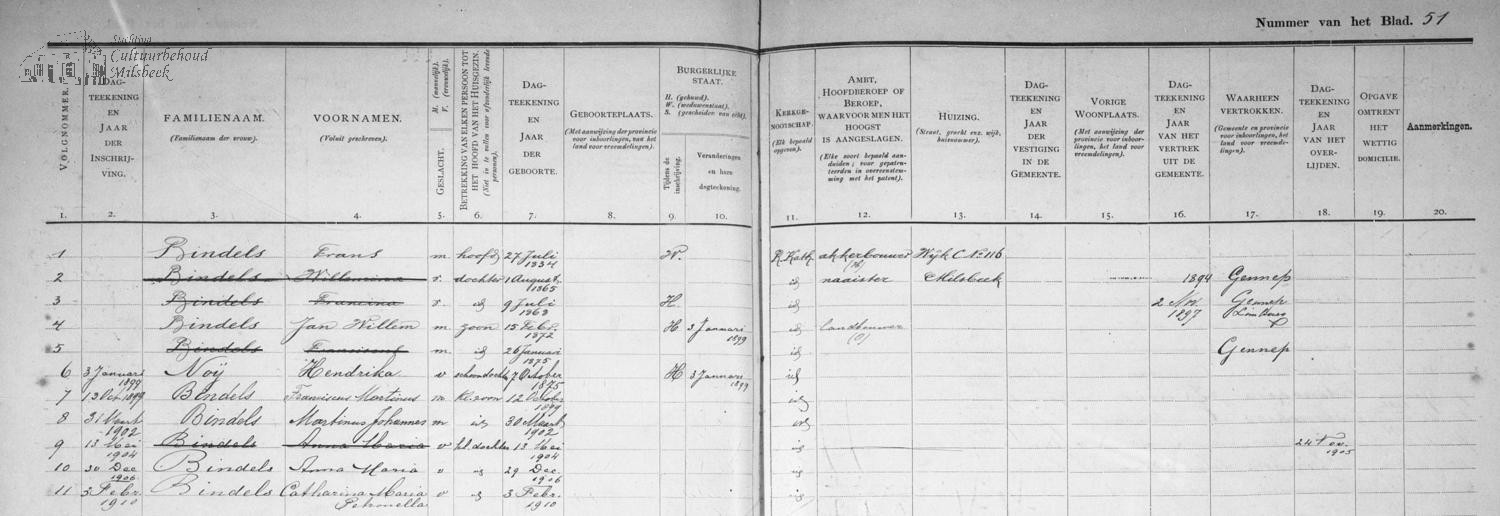 Stichting
Cultuurbehoud
Milsbeek
Nummer van het Blad. 51
VOLGNOMMER.
DAG-
TEEKENING
EN
JAAR
DER
INSCHRIJ-
VING.
FAMILIENAAM.
(Familienaam der vrouw).
VOORNAMEN.
(Voluit geschreven).
GESLACHT.
M. (mannelijk).
V. (vrouwelijk).
BETREKKING VAN ELKEN PERSOON TOT
HET HOOFD VAN HET HUISGEZIN.
(Niet in te vullen voor afzonderlijk levende
personen).
DAG-
TEEKENING
EN
JAAR
DER
GEBOORTE.
GEBOORTEPLAATS.
(Met aanwijzing der provincie
voor inboorlingen, van het
land voor vreemdelingen).
BURGERLIJKE
STAAT.
H. (gehuwd).
W. (weduwenstaat).
S. (gescheiden van echt).
Tijdens de
inschrijving.
Veranderingen
en hare
dagteekening.
KERKGE-
NOOTSCHAP.
(Elk bepaald
opgeven).
AMBT,
HOOFDBEROEP OF
BEROEP,
WAARVOOR MEN HET
HOOGST
IS AANGESLAGEN.
(Elke soort bepaald aan-
duiden; voor gepaten-
teerden in overeenstem-
ming met het patent).
HUIZING.
(Straat, gracht enz. wijk,
huisnummer).
DAG-
TEEKENING
EN
JAAR DER
VESTIGING
IN DE
GEMEENTE.
VORIGE
WOONPLAATS.
(Met aanwijzing der
provincie voor inboor-
lingen, het land voor
vreemdelingen).
DAG-
TEEKENING
EN
JAAR VAN HET
VERTREK
UIT DE
GEMEENTE.
WAARHEEN
VERTROKKEN.
(Gemeente en provincie
voor inboorlingen, het
land voor vreemde-
lingen).
DAG-
TEEKENING
EN
JAAR
VAN HET
OVER-
LIJDEN.
OPGAVE
OMTRENT
HET
WETTIG
DOMICILIE.
Aanmerkingen.
1. 2. 3. 4. 5. 6. 7. 8. 9. 10. 11. 12. 13. 14. 15. 16. 17. 18. 19. 20.
1 Bindels Frans m hoofd 27 Juli 1834 W. R. Kath akkerbouwer Wijk C No 116
2 Bindels Willemina v. dochter 1 August. 1865 id naaister Milsbeek 1894 Gennep
3 Bindels Francina v. id 9 Juli 1868 H. id 2 Nov. 1897 Gennep
4 Bindels Jan Willem m. zoon 15 Febr. 1872 H 3 Januari 1899 id landbouwer
5 Bindels m. id 26 Januari 1875 id Gennep
6 3 Januari 1899 Noÿ Hendrika v schoondocht. 7 October 1875 H 3 Januari 1899 id
7 13 Oct 1899 Bindels Franciscus Martinus m kl. zoon 12 October 1899 id
8 31 Maart 1902 Bindels Martinus Johannes m id 30 Maart 1902 id
9 13 Mei 1904 Bindels Anna Maria v kl. dochter 13 Mei 1904 id 24 Nov. 1905
10 30 Dec 1906 Bindels Anna Maria v id 29 Dec. 1906 id
11 3 Febr. 1910 Bindels Catharina Maria Petronella v id 3 Febr. 1910 id